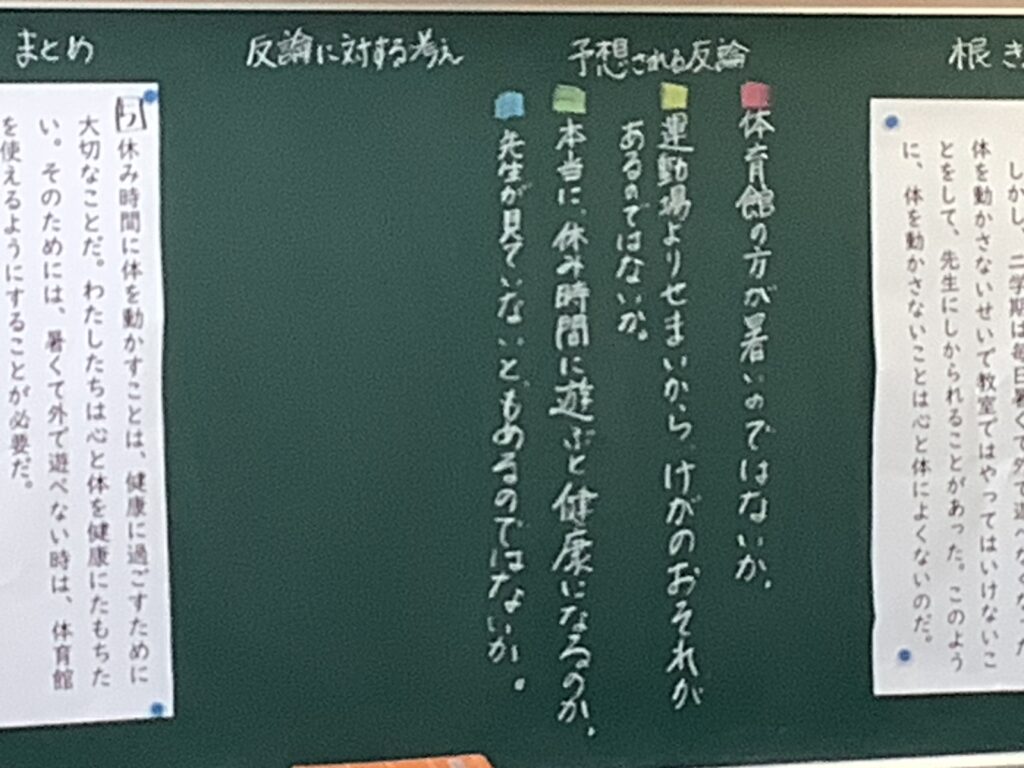 根
しかし、二学期は毎日暑くて外で遊べなくなった
体を動かさないせいで教室ではやってはいけないこ
とをして、先生にしかられることがあった。このよう
に、体を動かさないことは心と体によくないのだ。
予想される反論
体育館の方が暑いのではないか。
運動場よりせまいから、けがのおそれが
あるのではないか。
本当に、休み時間に遊ぶと健康になるのか。
先生が見ていないと、もめるのではないか。
反論に対する考え
まとめ
5
休み時間に体を動かすことは、健康に過ごすために
大切なことだ。わたしたちは心と体を健康にたもちた
い。そのためには、暑くて外で遊べない時は、体育館
を使えるようにすることが必要だ。